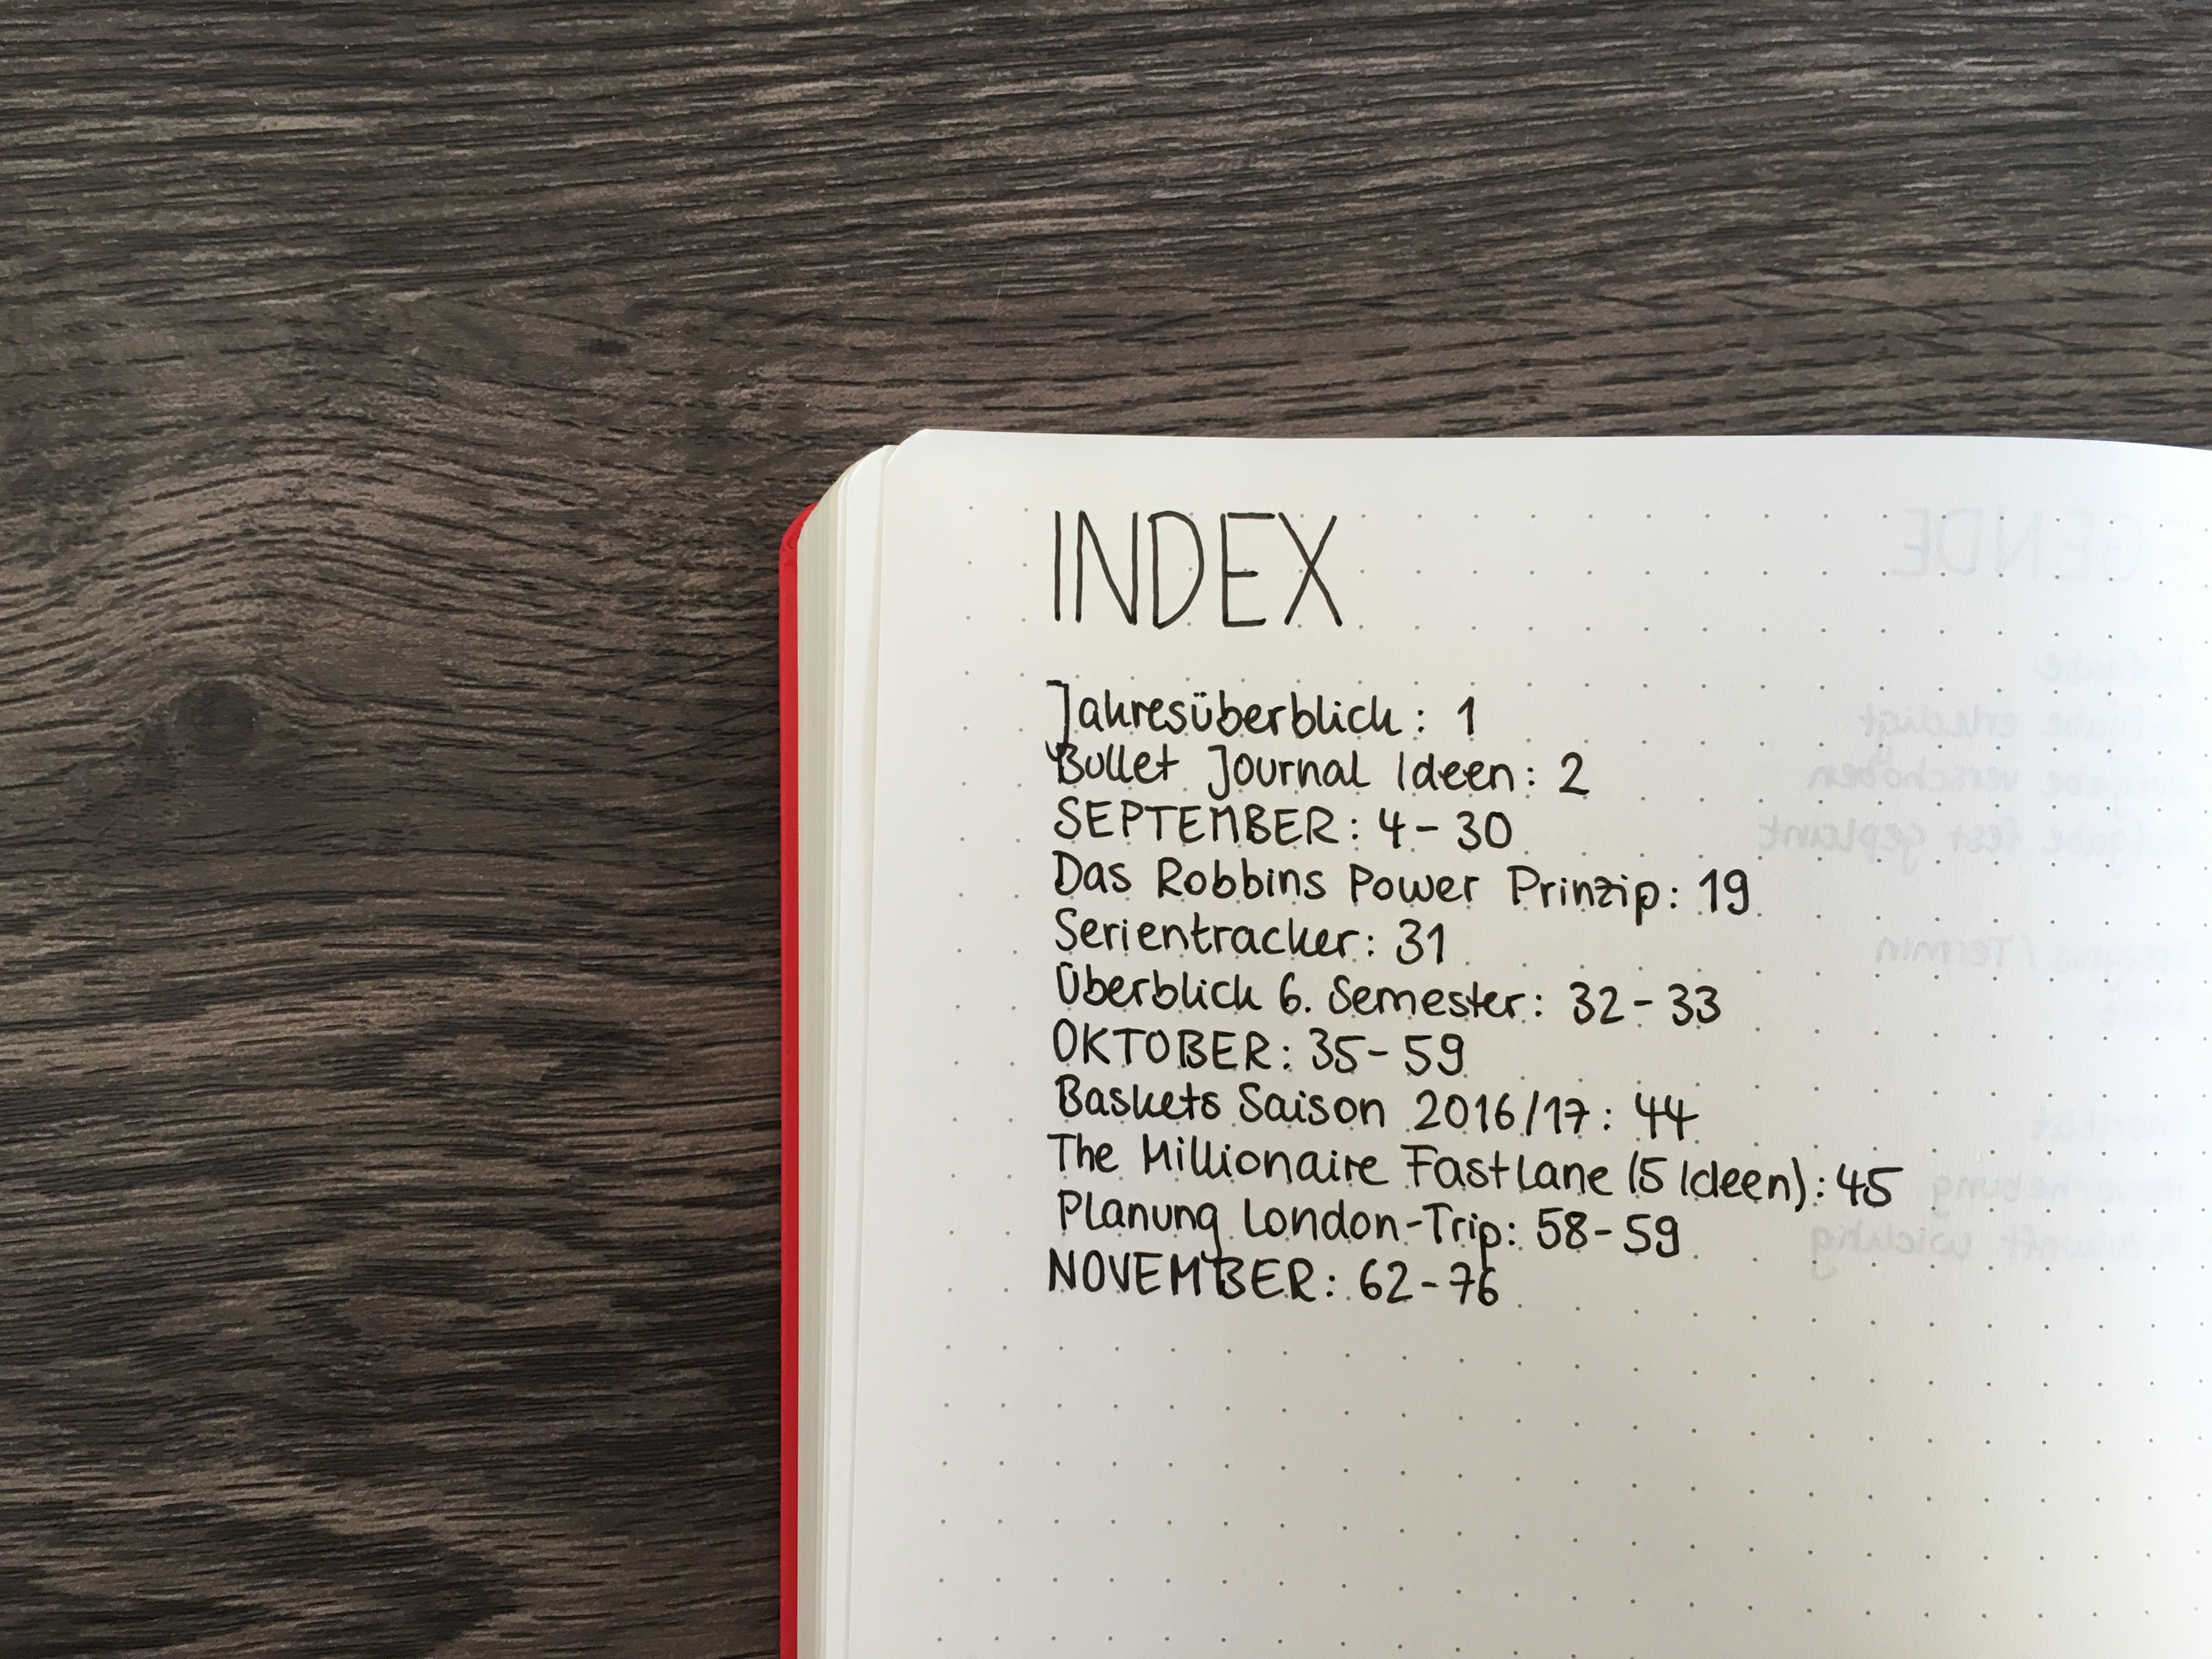 INDEX
Jahresüberblick: 1
Bullet Journal Ideen: 2
SEPTEMBER: 4-30
Das Robbins Power Prinzip: 19
Serientracker: 31
Überblick 6. Semester: 32-33
OKTOBER: 35-59
Baskets Saison 2016/17: 44
The Millionaire Fastlane (5 Ideen): 45
Planung London-Trip: 58-59
NOVEMBER: 62-76